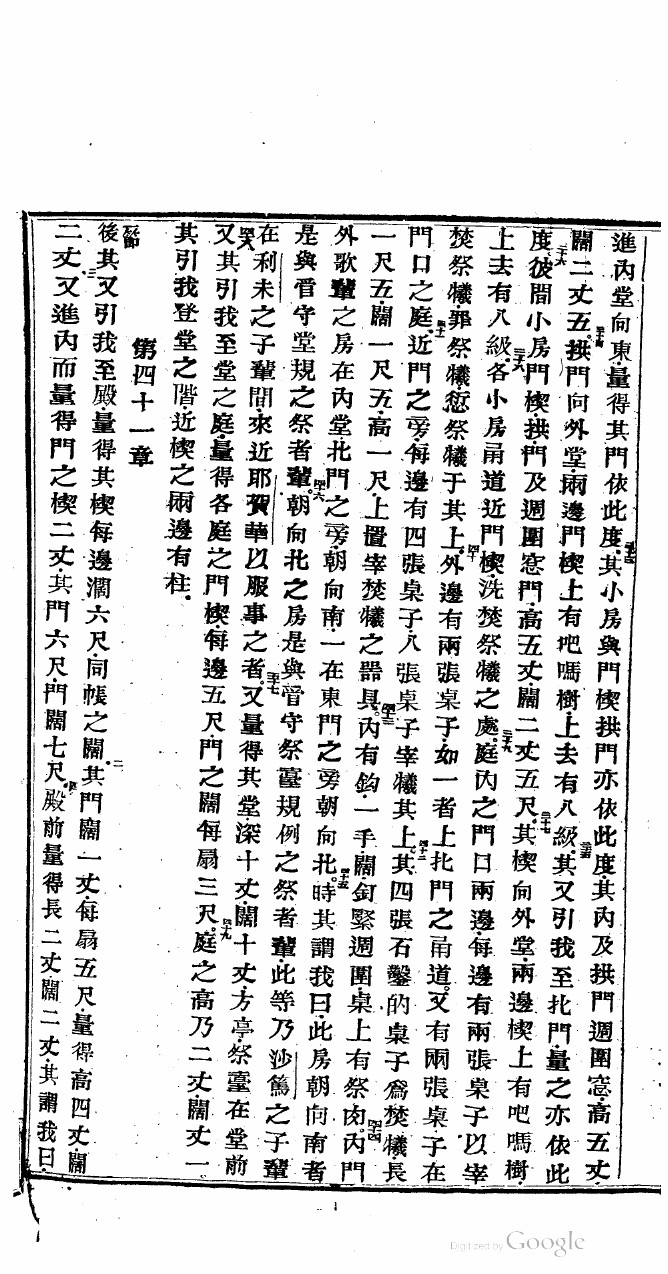 進內堂向東量得其門依此度其小房與門楔拱門亦依此度其內及拱門週圍窓高五丈
闊二丈五拱門向外堂兩邊門楔上有吧嗎樹上去有八級其又引我至北門量之亦依此
度彼間小房門楔拱門及週圍窓門高五丈闊二丈五尺其楔向外堂兩邊楔上有吧嗎樹
上去有八級各小房甬道近門楔洗焚祭犧之處庭內之門口兩邊每邊有兩張桌子以宰
焚祭犧罪祭犧愆祭犧于其上外邊有兩張桌子如一者上北門之甬道又有兩張桌子在
門口之庭近門之旁每邊有四張桌子八張桌子宰犧其上其四張石鑿的桌子為焚犧長
一尺五闊一尺五高一尺上置宰焚犧之噐具內有鈎一手闊釘緊週圍桌上有祭肉內門
外歌輩之房在內堂北門之旁朝向南一在東門之旁朝向北時其謂我曰此房朝向南者
是與管守堂規之祭者輩朝向北之房是與管守祭臺規例之祭者輩此等乃沙篤之子輩
在利未之子輩間來近耶賀華以服事之者又量得其堂深十丈闊十丈方亭祭臺在堂前
又其引我至堂之庭量得各庭之門楔每邊五尺門之闊每扇三尺庭之高乃二丈闊丈一
其引我登堂之階近楔之兩邊有柱
第四十一章
後其又引我至殿量得其楔每邊濶六尺同帳之闊其門闊一丈每扇五尺量得高四丈闊
二丈又進內而量得門之楔二丈其門六尺門闊七尺殿前量得長二丈闊二丈其謂我曰
Digitized by Google